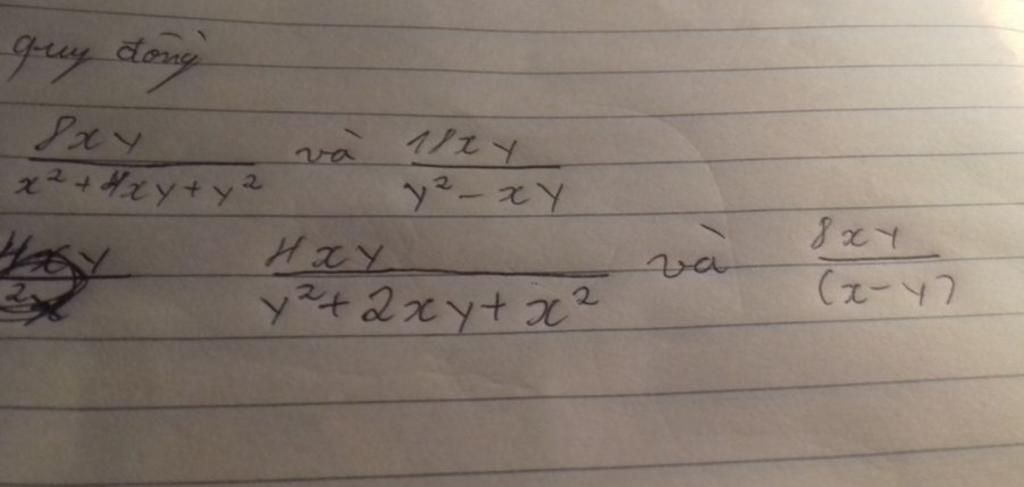 quy đồng
8xy / (x² + 4xy + y²) và 18xy / (y² - xy)
4xy / (y² + 2xy + x²) và 8xy / (x - y)